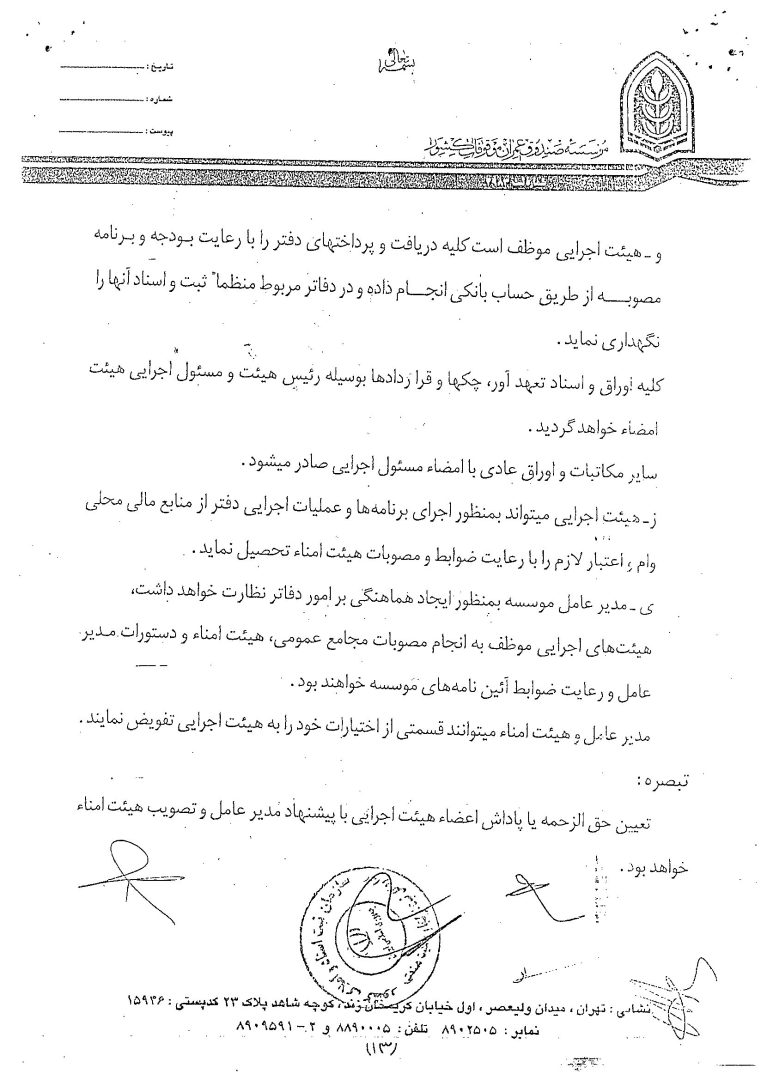 بسمه تعالی
تاریخ :
شماره :
پیوست :
مؤسسه صندوق عمران موقوفات کشور
و ـ هیئت اجرایی موظف است کلیه دریافت و پرداختهای دفتر را با رعایت بودجه و برنامه
مصوبه از طریق حساب بانکی انجام داده و در دفاتر مربوط منظماً ثبت و اسناد آنها را
نگهداری نماید .
کلیه اوراق و اسناد تعهد آور، چکها و قرا ردادها بوسیله رئیس هیئت و مسئول اجرایی هیئت
امضاء خواهد گردید .
سایر مکاتبات و اوراق عادی با امضاء مسئول اجرایی صادر میشود .
ز ـ هیئت اجرایی میتواند بمنظور اجرای برنامه‌ها و عملیات اجرایی دفتر از منابع مالی محلی
وام و اعتبار لازم را با رعایت ضوابط و مصوبات هیئت امناء تحصیل نماید .
ی ـ مدیر عامل موسسه بمنظور ایجاد هماهنگی بر امور دفاتر نظارت خواهد داشت،
هیئت‌های اجرایی موظف به انجام مصوبات مجامع عمومی، هیئت امناء و دستورات مدیر
عامل و رعایت ضوابط آئین نامه‌های موسسه خواهند بود .
مدیر عامل و هیئت امناء میتوانند قسمتی از اختیارات خود را به هیئت اجرایی تفویض نمایند .
تبصره :
تعیین حق الزحمه یا پاداش اعضاء هیئت اجرایی با پیشنهاد مدیر عامل و تصویب هیئت امناء
خواهد بود .
سازمان ثبت اسناد و املاک کشور
نشانی : تهران ، میدان ولیعصر ، اول خیابان کریمخان زند، کوچه شاهد پلاک ۲۳ کدپستی : ۱۵۹۴۶
نمابر : ۸۹۰۲۵۰۵ تلفن : ۸۸۹۰۰۰۵ و ۲ - ۸۹۰۹۵۹۱
(۱۳)